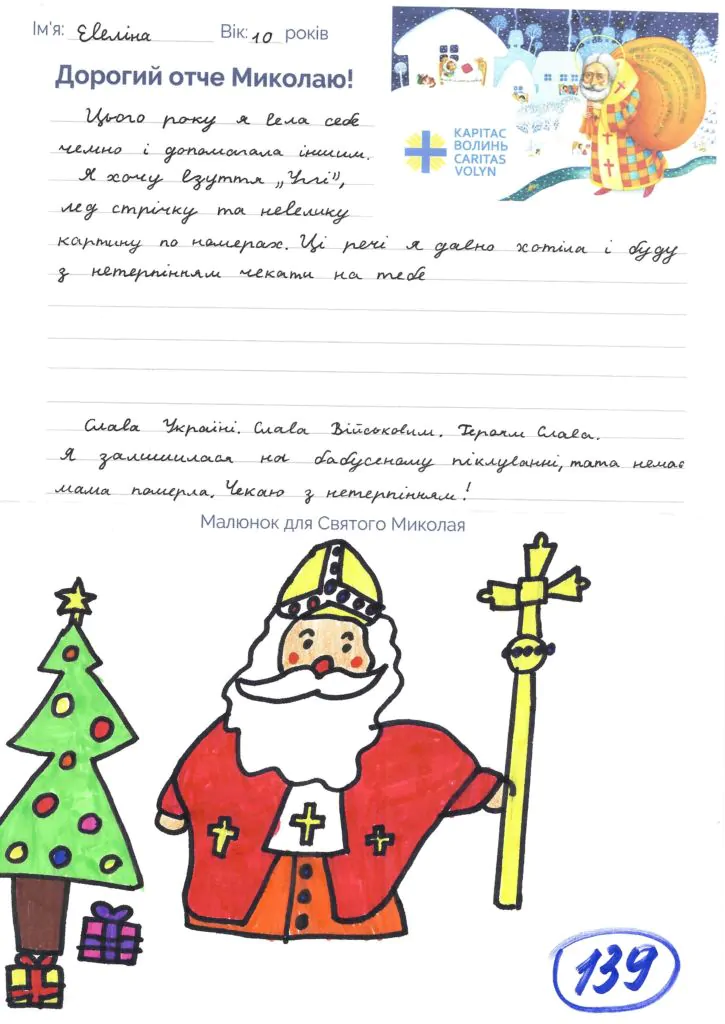 Ім'я: Евеліна Вік: 10 років
КАРІТАС
ВОЛИНЬ
CARITAS
VOLYN
Дорогий отче Миколаю!
Цього року я вела себе
чемно і допомагала іншим.
Я хочу взуття „Уггі",
лед стрічку та невелику
картину по номерах. Ці речі я давно хотіла і буду
з нетерпінням чекати на тебе
Слава Україні. Слава Військовим. Героям Слава.
Я залишилася на бабусеному піклуванні, тата немає
мама померла. Чекаю з нетерпінням!
Малюнок для Святого Миколая
139